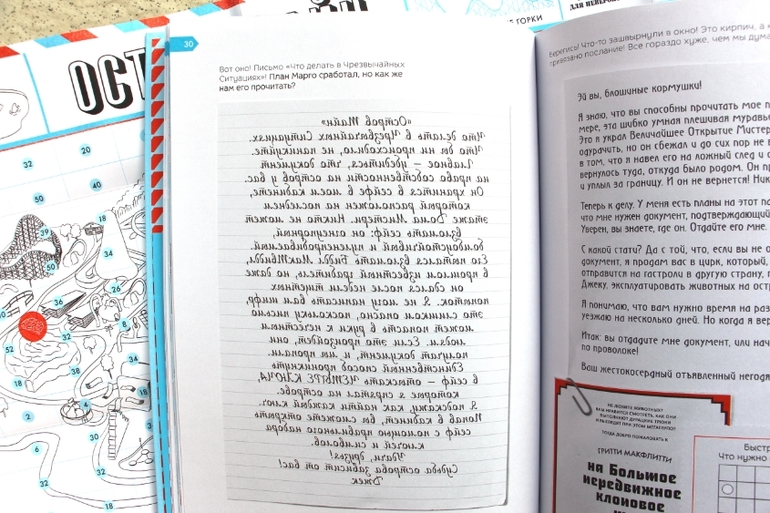 ОСТ
ГОРКИ
30
Вот оно! Письмо «Что делать в Чрезвычайных
Ситуациях»! План Марго сработал, но как же
нам его прочитать?
«Остров Тайн»
Что делать в Чрезвычайных Ситуациях.
Что бы ни происходило, не паникуйте.
Главное – убедитесь, что документ
на право собственности на остров у вас.
Он хранится в сейфе в моем кабинете,
который расположен на последнем
этаже Дома Мистерии. Никто не может
взломать сейф: он огнеупорный,
и пуленепробиваемый.
взломать
в прошлом известный грабитель, но даже
он сдался после недели тщетных
попыток. Я не могу написать вам шифр,
это слишком опасно, поскольку письмо
может попасть в руки к нечестным
людям. Если это произойдет, они
получат документы, и мы пропали.
Единственный способ проникнуть
в сейф – отыскать ЧЕТЫРЕ КЛЮЧА,
которые я спрятал на острове.
Я подскажу, как найти каждый ключ.
Попав в кабинет, вы сможете открыть
сейф с помощью правильного набора
ключей и символов.
Удачи, друзья!
Судьба острова зависит от вас!
Джек
Берегись! Что-то зашвырнули в окно! Это кирпич, а к
привязано послание! Все гораздо хуже, чем мы дума
Эй вы, блошиные кормушки!
Я знаю, что вы способны прочитать мое п
мере, эта шибко умная плешивая муравье
Это я украл Величайшее Открытие Мистер
одурачить, но он сбежал и до сих пор не в
в том, что я навел его на ложный след и о
вернулось туда, откуда было родом. Он пр
и уплыл за границу. И он не вернется! Ник
Теперь к делу. У меня есть планы на этот па
что мне нужен документ, подтверждающий
Уверен, вы знаете, где он. Отдайте его мне.
С какой стати? Да с той, что, если вы не о
документ, я продам вас в цирк, который,
отправится на гастроли в другую страну, г
Джеку, эксплуатировать животных на остр
Я понимаю, что вам нужно время на раз
уезжаю на несколько дней. Но когда я вер
Итак: вы отдадите мне документ, или нач
по проволоке!
Ваш жестокосердый отъявленный негодя
ГРИППИ МАКФЛИТТИ
на Большое
передвижное
клоповое
Быстр
Что нужно